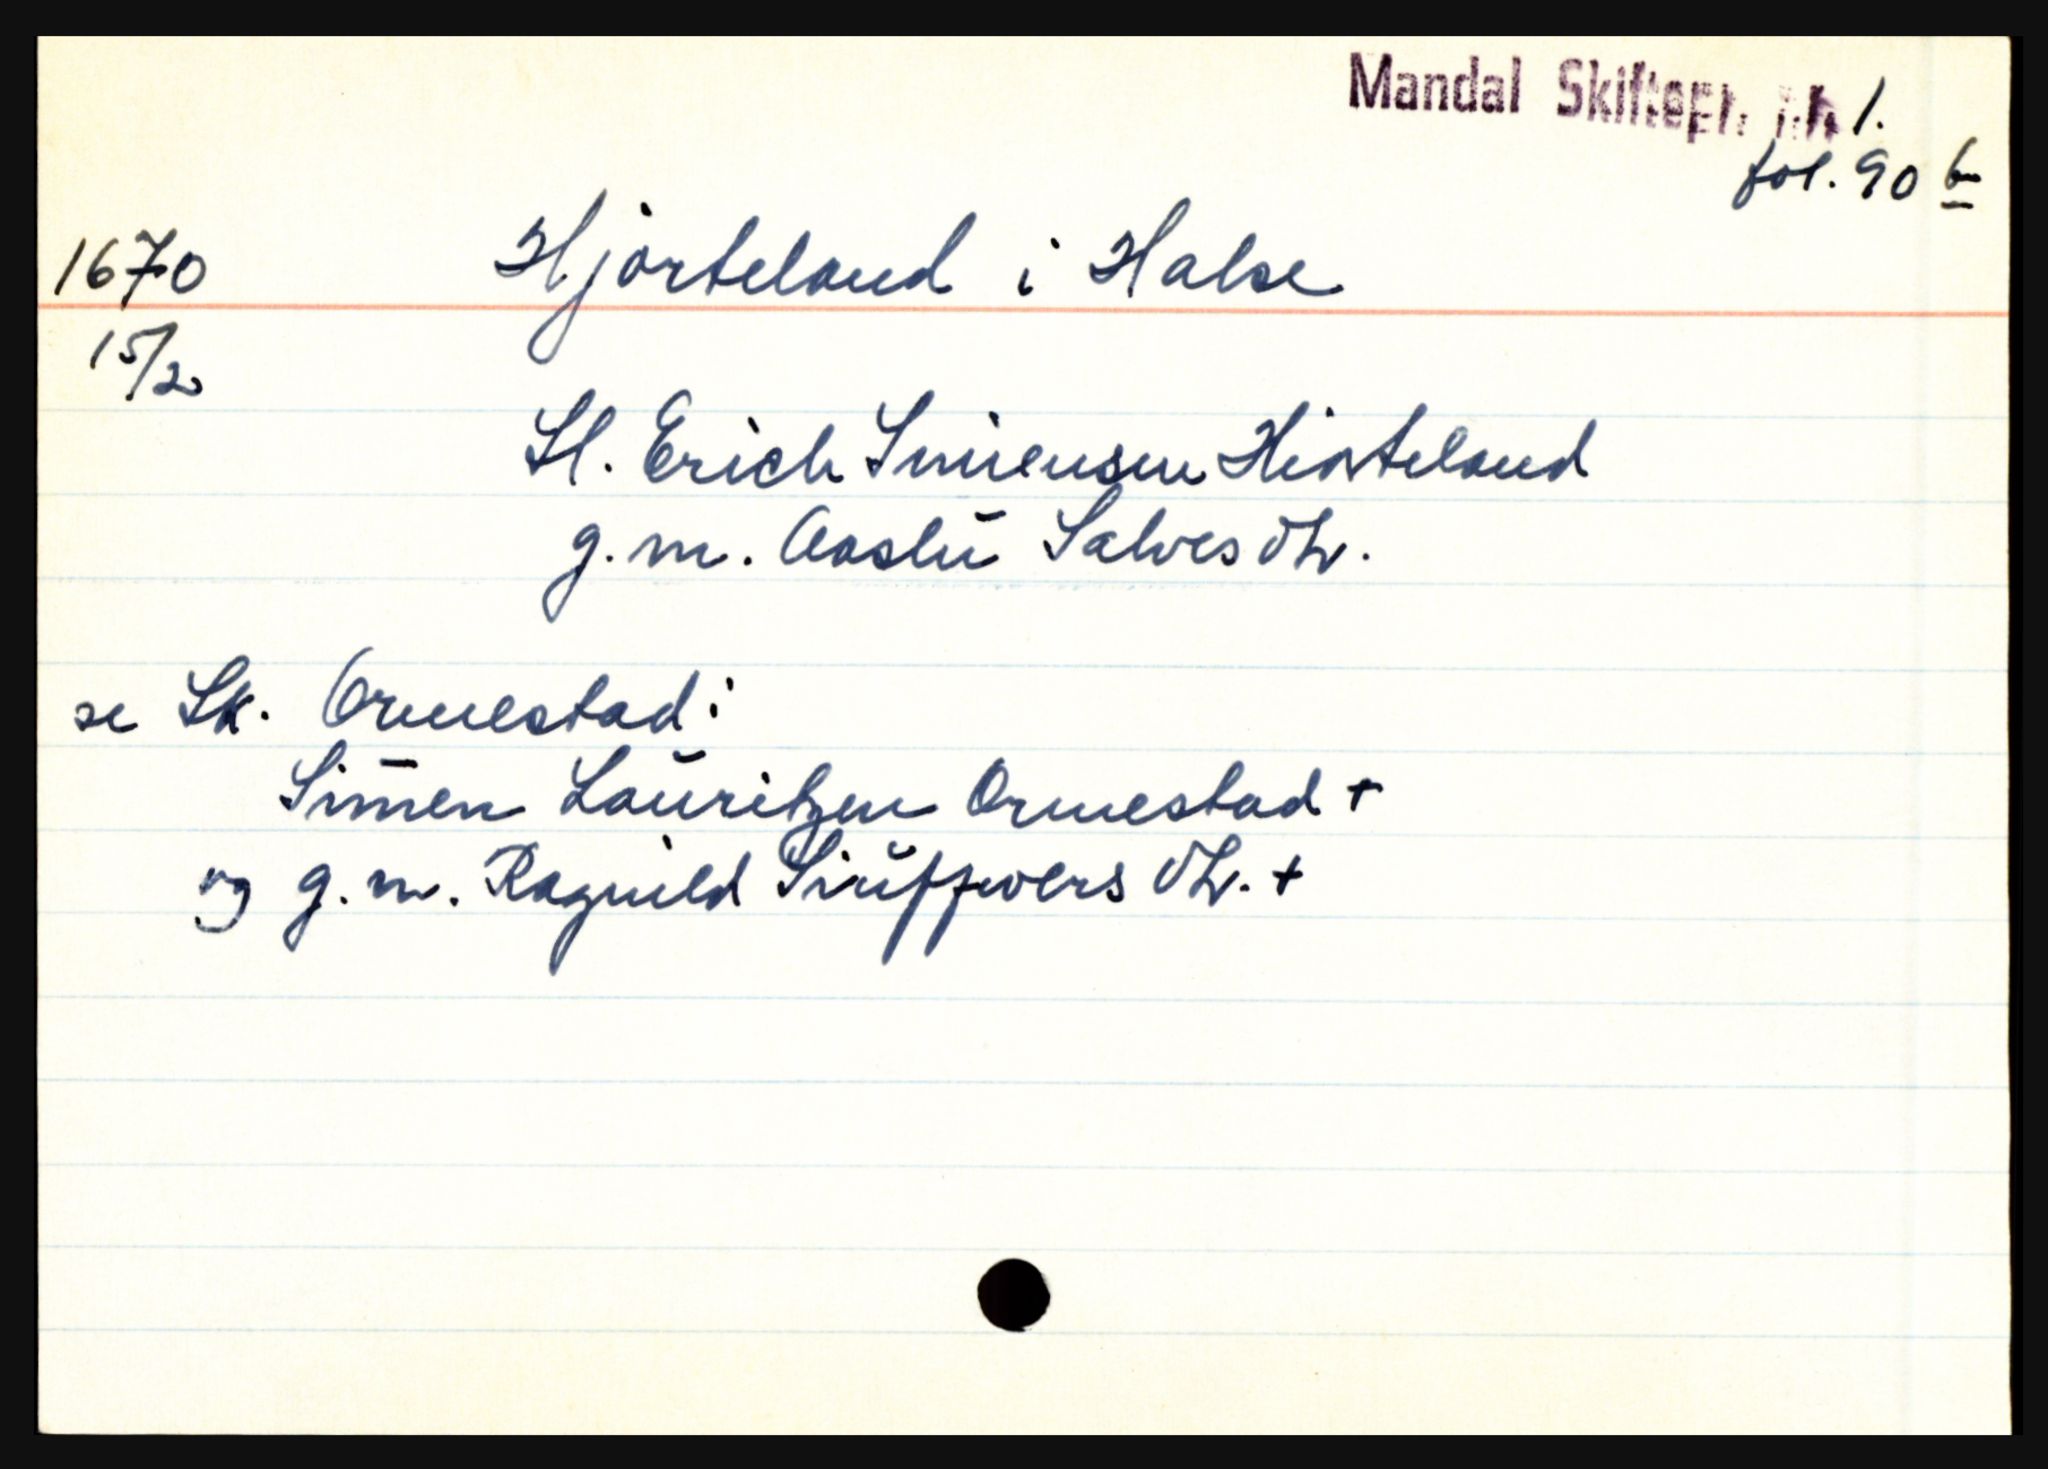 Mandal Skiftepr. nr. 1.
fol. 90 b
1670 Hjorteland i Halse
15/2
Sl. Erich Simensen Hiorteland
g. m. Aaslŭ Salves dtr.
se Sk. Ormestad:
Sim̄en Laŭritzen Ormestad +
og g. m. Ragnild dtr. +